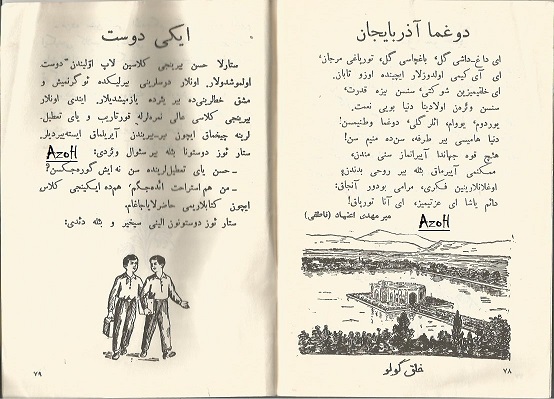 دوغما آذربایجان
ای داغ-داشی گل، باغچاسی گل، تورپاغی مرجان،
ای آی کیمی اولدوزلار ایچینده اوزو تابان،
ای خلقیمیزین شوکتی، سنسن بیزه قدرت،
سنسن وئره‌ن اولادینا دنیا بویی نعمت.
یوردوم، یووام، ائلر گلی، دوغما وطنیمسن،
دنیا هامیسی بیر طرفه، سن‌ده منیم سن!
هئچ قوه جهاندا آییرانماز سنی مندن،
ممکنمی آییرماق بئله بیر روحی بدندن؟
اوغلانلارینن فکری، مرامی بودور آنجاق:
دائم یاشا ای عزتیمیز، ای آنا تورپاق!
میر مهدی اعتماد (ناطقی)
AzoH
خلق گولو
۷۸
ایکی دوست
ستارلا حسن بیرینجی کلاسین لاپ اوّلیندن دوست
اولموشدولار. اونلار درسلرینی بیرلیکده ئوگرنمیش و
مشق خطلرینی‌ده بیر یئرده یازمیشدیلار. ایندی اونلار
بیرینجی کلاسی عالی نمره‌لرله قورتاریب و یای تعطیل-
لرینه چیخماق ایچون بیر-بیریندن آیریلماق ایسته‌ییردیلر.
ستار ئوز دوستونا بئله بیر سئوال وئردی:
AzoH
- حسن یای تعطیل‌لرینده سن نه‌ایش گوره‌جکسن؟
- من هم استراحت ائده‌جگم، هم‌ده ایکینجی کلاس
ایچون کتابلاریمی حاضرلایاجاغام.
ستار ئوز دوستونون الینی سیخیر و بئله دئدی:
۷۹